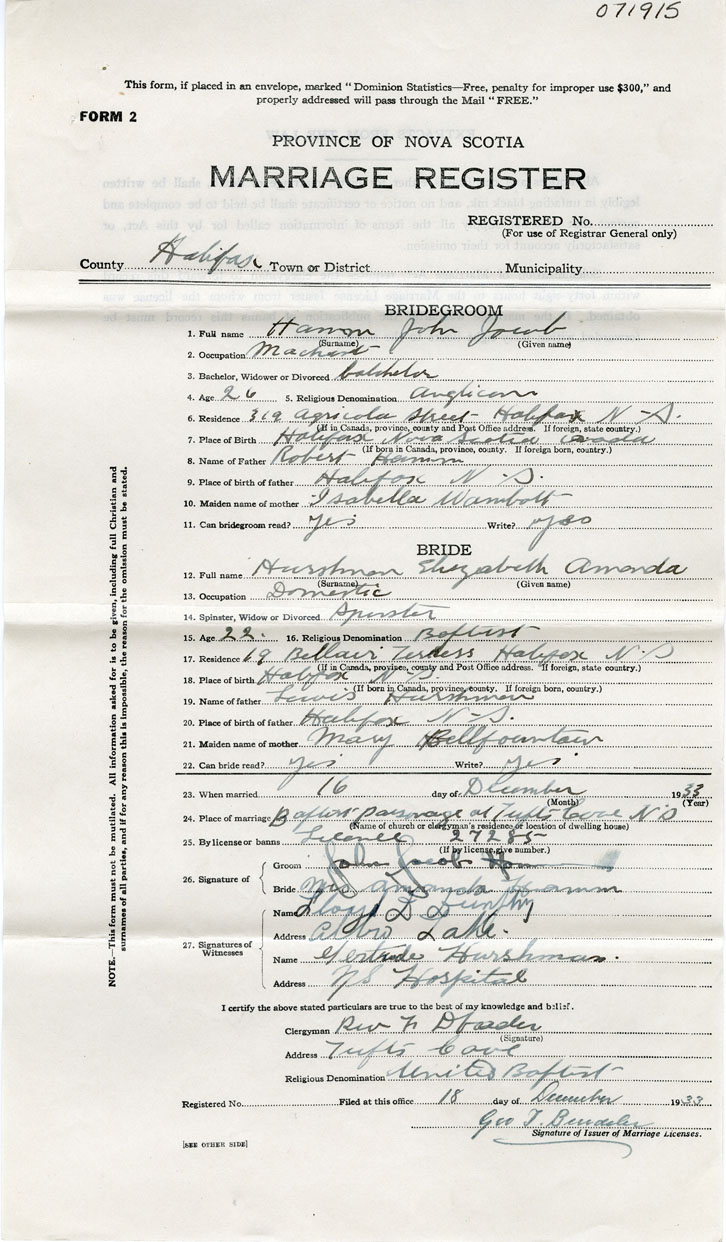 071915
This form, if placed in an envelope, marked "Dominion Statistics—Free, penalty for improper use $300," and
properly addressed will pass through the Mail "FREE."
FORM 2
PROVINCE OF NOVA SCOTIA
MARRIAGE REGISTER
REGISTERED No.
(For use of Registrar General only)
County Halifax Town or District Municipality
BRIDEGROOM
1. Full name Hamm John Jacob
(Surname) (Given name)
2. Occupation Machist
3. Bachelor, Widower or Divorced Batchelor
4. Age 26 5. Religious Denomination Anglican
6. Residence 319 Agricola Street Halifax N-S.
(If in Canada, province, county and Post Office address. If foreign, state country.)
7. Place of Birth Halifax Nova Scotia Canada
(If born in Canada, province, county. If foreign born, country.)
8. Name of Father Robert Hamm
9. Place of birth of father Halifax N-S.
10. Maiden name of mother Isabella Wambolt
11. Can bridegroom read? Yes Write? yes
BRIDE
12. Full name Hurshman Elizabeth Amanda
(Surname) (Given name)
13. Occupation Domestic
14. Spinster, Widow or Divorced Spinster
15. Age 22. 16. Religious Denomination Baptist
17. Residence 69 Bellair Terress Halifax N-S
(If in Canada, province, county and Post Office address. If foreign, state country.)
18. Place of birth Halifax N-S.
(If born in Canada, province, county. If foreign born, country.)
19. Name of father Lewis Hurshman
20. Place of birth of father Halifax N-S.
21. Maiden name of mother Mary Bellfountain
22. Can bride read? Yes Write? Yes
23. When married 16 day of December 1933
(Month) (Year)
24. Place of marriage Baptist parsonage at Tufts Cove N S
(Name of church or clergyman's residence or location of dwelling house)
25. By license or banns License 27285
(If by license, give number.)
26. Signature of
Groom John Jacob Hamm
Bride Mrs Amanda Hamm
27. Signatures of Witnesses
Name Lloyd D Dunphy
Address Lake.
Name Gertrude Hurshman.
Address NS Hospital
I certify the above stated particulars are true to the best of my knowledge and belief.
Clergyman Rev
(Signature)
Address Tufts Cove
Religious Denomination United Baptist
Registered No. Filed at this office 18 day of December 1933
Geo T
Signature of Issuer of Marriage Licenses.
[SEE OTHER SIDE]
NOTE.—This form must not be mutilated. All information asked for is to be given, including full Christian and
surnames of all parties, and if for any reason this is impossible, the reason for the omission must be stated.